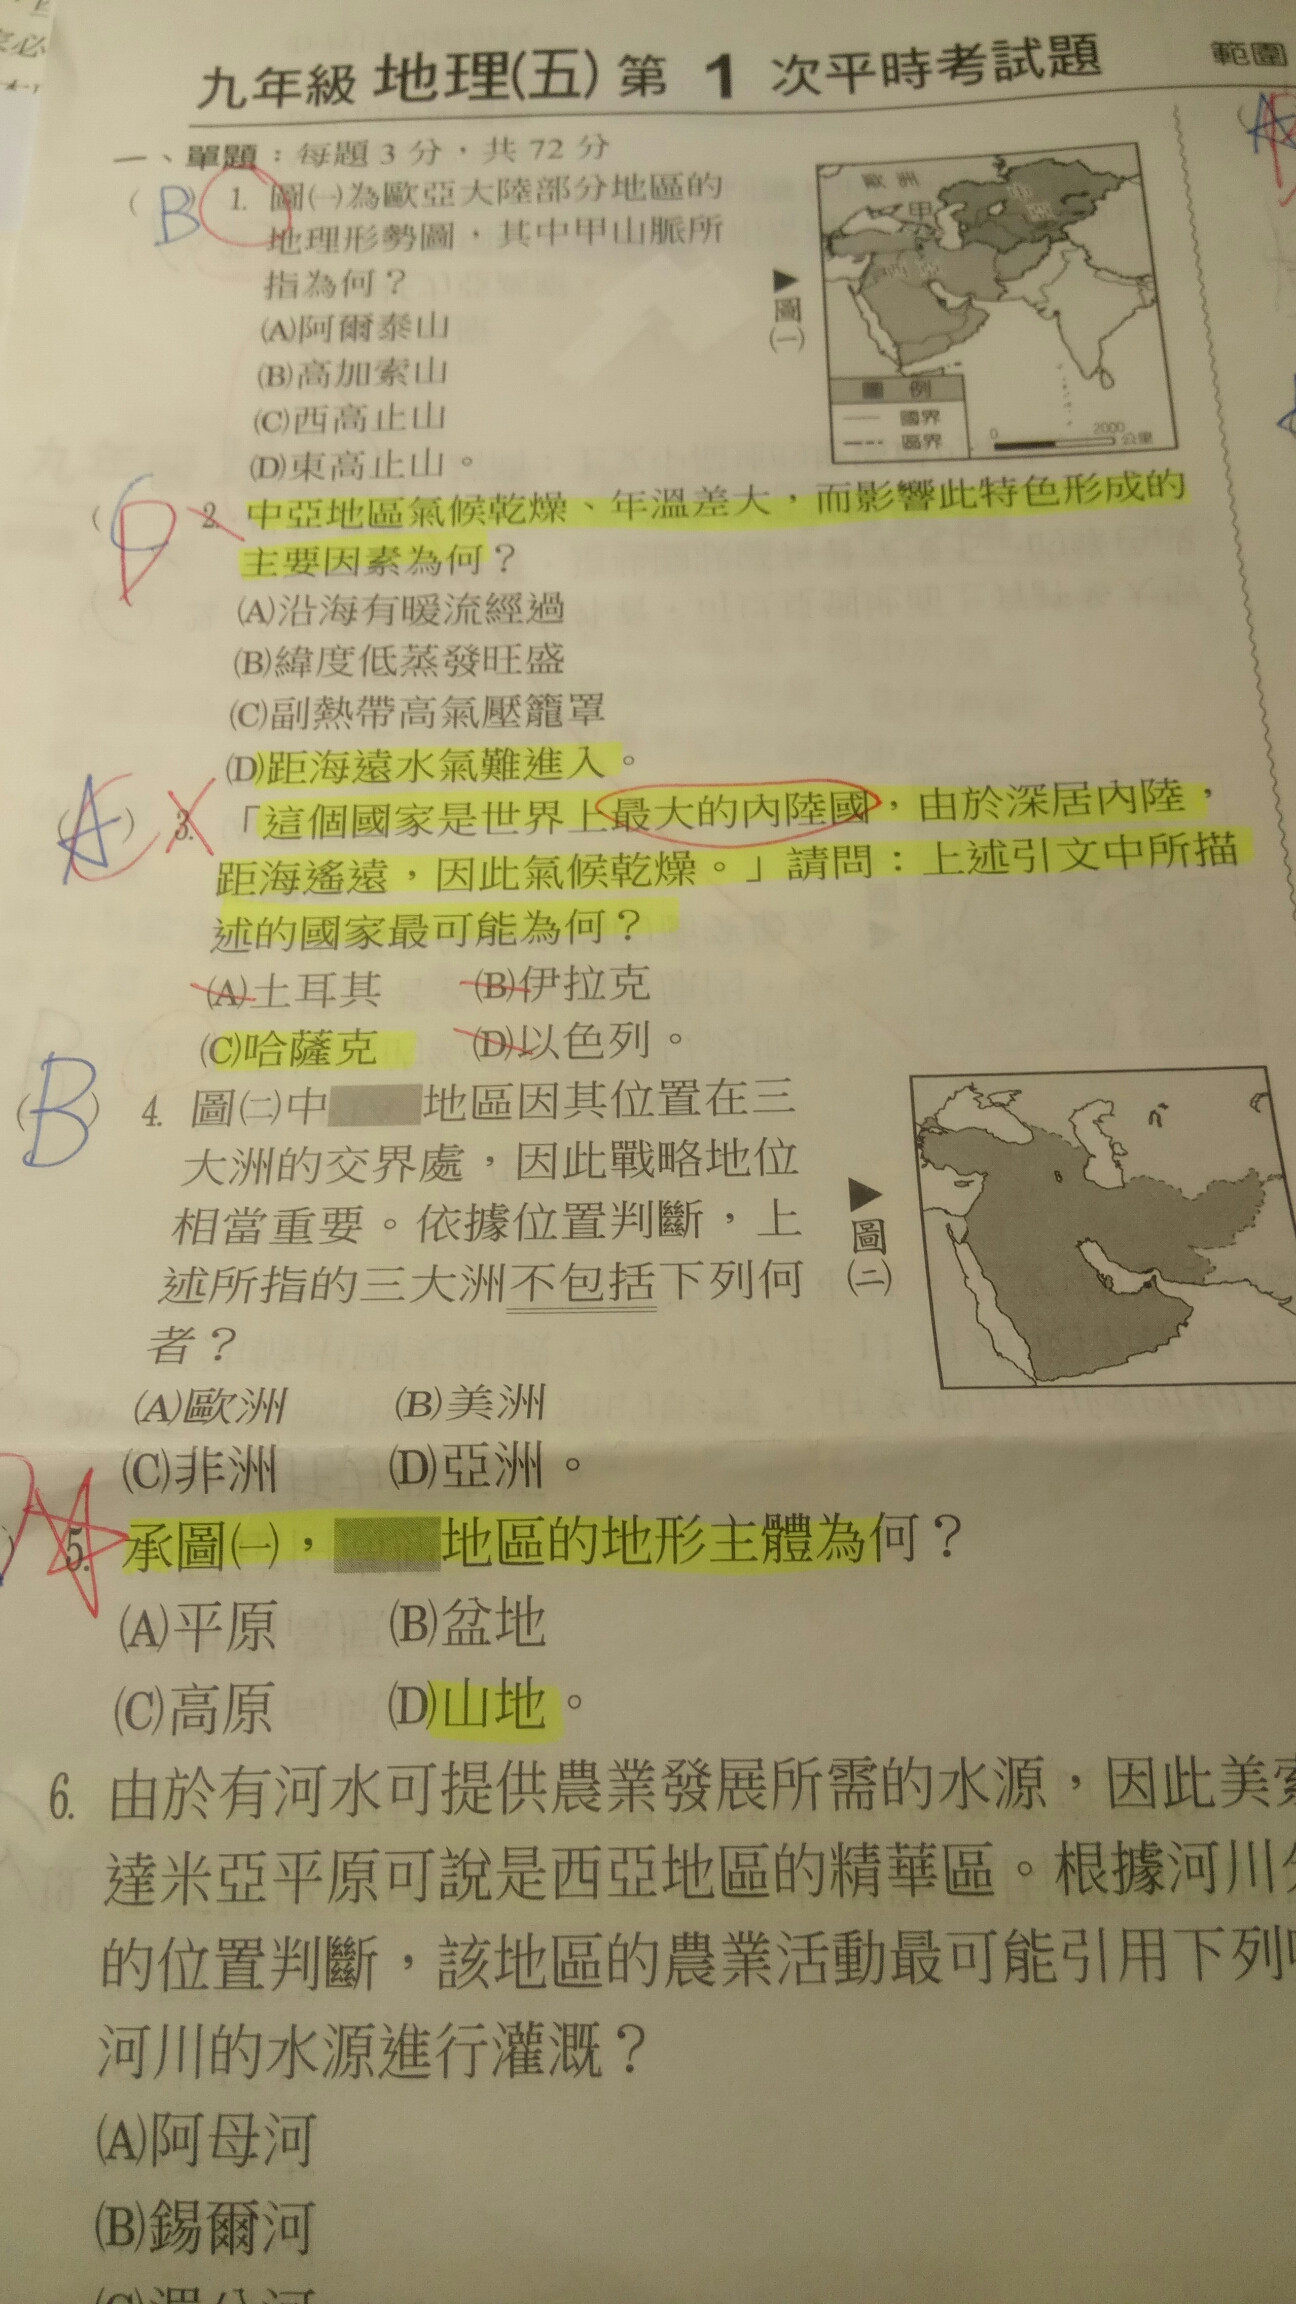 九年級 地理(五)第 1 次平時考試題
範圍
一、單題：每題 3 分，共 72 分
(B) 1. 圖(一)為歐亞大陸部分地區的
地理形勢圖，其中甲山脈所
指為何？
(A)阿爾泰山
(B)高加索山
(C)西高止山
(D)東高止山。
歐洲
甲
中亞
西亞
圖例
國界
區界
0 2000 公里
▶圖(一)
(C) D 2. 中亞地區氣候乾燥、年溫差大，而影響此特色形成的
主要因素為何？
(A)沿海有暖流經過
(B)緯度低蒸發旺盛
(C)副熱帶高氣壓籠罩
(D)距海遠水氣難進入。
(A) C 3. 「這個國家是世界上最大的內陸國，由於深居內陸，
距海遙遠，因此氣候乾燥。」請問：上述引文中所描
述的國家最可能為何？
(A)土耳其 (B)伊拉克
(C)哈薩克 (D)以色列。
(B) 4. 圖(二)中 地區因其位置在三
大洲的交界處，因此戰略地位
相當重要。依據位置判斷，上
述所指的三大洲不包括下列何
者？
(A)歐洲 (B)美洲
(C)非洲 (D)亞洲。
▶圖(二)
5. 承圖(一)， 地區的地形主體為何？
(A)平原 (B)盆地
(C)高原 (D)山地。
6. 由於有河水可提供農業發展所需的水源，因此美索
達米亞平原可說是西亞地區的精華區。根據河川
的位置判斷，該地區的農業活動最可能引用下列
河川的水源進行灌溉？
(A)阿母河
(B)錫爾河